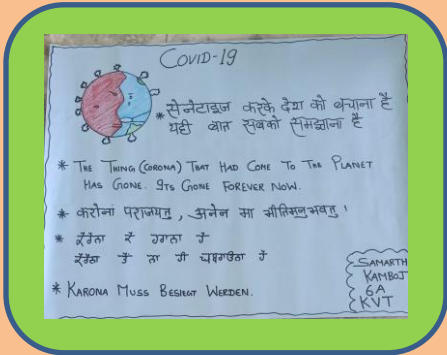 COVID-19
* सेनेटाइज करके देश को बचाना है
यही बात सबको समझाना है
* THE THING (CORONA) THAT HAD COME TO THE PLANET
HAS GONE. ITS GONE FOREVER NOW.
* करोनां पराजयतु, अनेन मा भीतिमनुभवतु।
* ਕੋਰੋਨਾ ਨੂੰ ਹਰਾਨਾ ਹੈ
ਕੋਰੋਨਾ ਤੋਂ ਨਾ ਹੀ ਘਬਰਾਉਣਾ ਹੈ
* KARONA MUSS BESIEGT WERDEN.
SAMARTH
KAMBOJ
6A
KVT